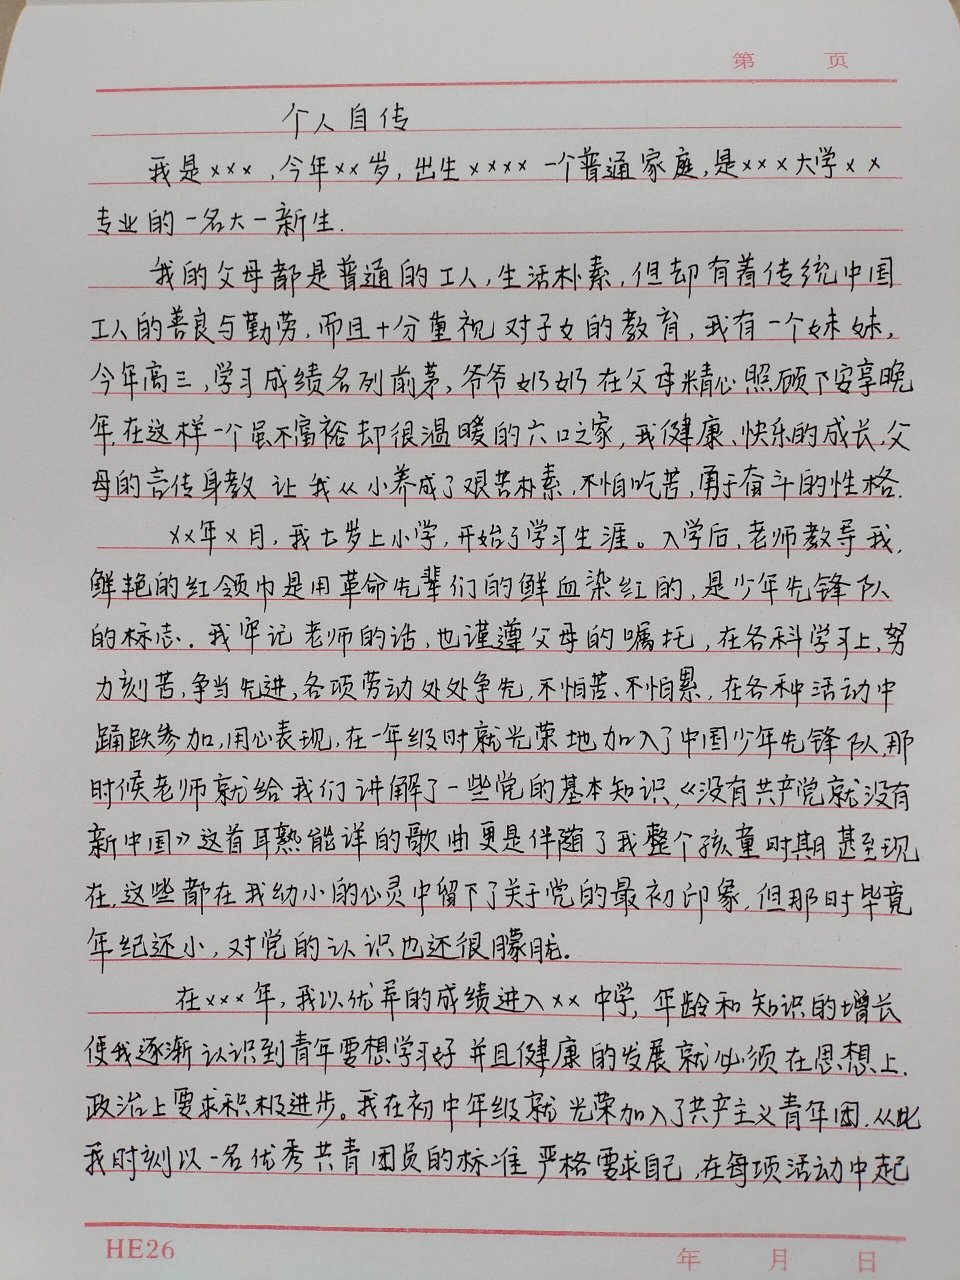 第 页
个人自传
我是×××,今年××岁,出生××××一个普通家庭,是×××大学××
专业的一名大一新生.
我的父母都是普通的工人,生活朴素,但却有着传统中国
工人的善良与勤劳,而且十分重视对子女的教育,我有一个妹妹,
今年高三,学习成绩名列前茅,爷爷奶奶在父母精心照顾下安享晚
年,在这样一个虽不富裕却很温暖的六口之家,我健康、快乐的成长,父
母的言传身教让我从小养成了艰苦朴素,不怕吃苦,勇于奋斗的性格.
××年×月,我七岁上小学,开始了学习生涯。入学后,老师教导我,
鲜艳的红领巾是用革命先辈们的鲜血染红的,是少年先锋队
的标志.我牢记老师的话,也谨遵父母的嘱托,在各科学习上,努
力刻苦,争当先进,各项劳动处处争先,不怕苦、不怕累,在各种活动中
踊跃参加,用心表现,在一年级时就光荣地加入了中国少年先锋队,那
时候老师就给我们讲解了一些党的基本知识,《没有共产党就没有
新中国》这首耳熟能详的歌曲更是伴随了我整个孩童时期甚至现
在,这些都在我幼小的心灵中留下了关于党的最初印象,但那时毕竟
年纪还小,对党的认识也还很朦胧。
在×××年,我以优异的成绩进入××中学,年龄和知识的增长
使我逐渐认识到青年要想学习好并且健康的发展就必须在思想上.
政治上要求积极进步。我在初中年级就光荣加入了共产主义青年团.从此
我时刻以一名优秀共青团员的标准严格要求自己,在每项活动中起
HE26
年 月 日